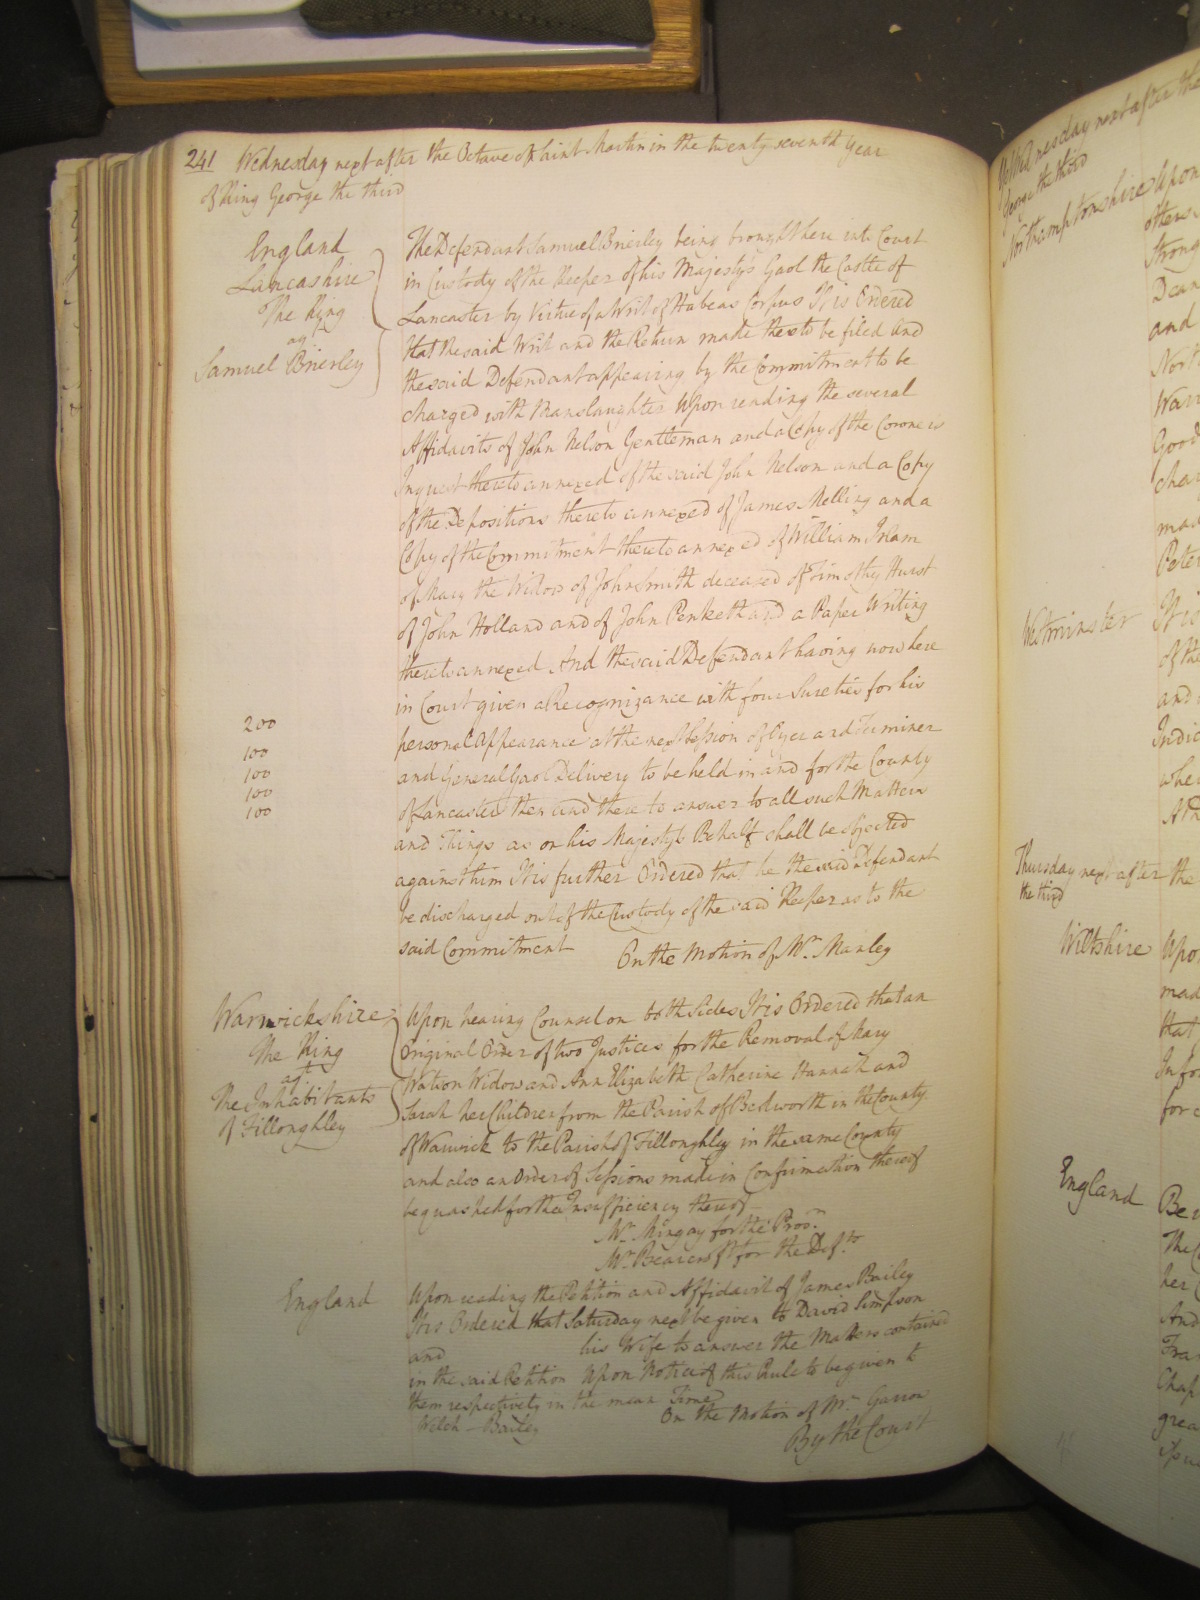 241 Wednesday next after the Octave of Saint Martin in the twenty seventh Year
of King George the third
England
Lancashire
The King
agt
Samuel Brierley
The Defendant Samuel Brierley being brought here into Court
in Custody of the Keeper of his Majesty's Gaol the Castle of
Lancaster by Virtue of a Writ of Habeas Corpus It is Ordered
that the said Writ and the Return made thereto be filed And
the said Defendant appearing by the Commitment to be
charged with Manslaughter Upon reading the several
Affidavits of John Nelson Gentleman and a Copy of the Coroners
Inquest thereto annexed of the said John Nelson and a Copy
of the Depositions thereto annexed of James Melling and a
Copy of the Commitment thereto annexed of William
of Mary the Widow of John Smith deceased of Timothy Hurst
of John Holland and of John Penketh and a Paper Writing
thereto annexed And the said Defendant having now here
in Court given a Recognizance with four Sureties for his
personal Appearance at the next Session of Oyer and Terminer
and General Gaol Delivery to be held in and for the County
of Lancaster then and there to answer to all such Matters
and Things as on his Majesty's Behalf shall be objected
against him It is further Ordered that he the said Defendant
be discharged out of the Custody of the said Keeper as to the
said Commitment
On the Motion of Mr. Manley
200
100
100
100
100
Warwickshire
The King
agt
The Inhabitants
of Filloughley
Upon hearing Counsel on both Sides It is Ordered that an
Original Order of two Justices for the Removal of Mary
Watson Widow and Ann Elizabeth Catherine Hannah and
Sarah her Children from the Parish of Bedworth in the County
of Warwick to the Parish of Filloughley in the same County
and also an Order of Sessions made in Confirmation thereof
be quashed for the Insufficiency thereof
Mr. Mingay for the Prosn.
Mr. Bearcroft for the Defts.
England
Upon reading the Petition and Affidavit of James Bailey
It is Ordered that Saturday next be given to David Simpson
and his Wife to answer the Matters contained
in the said Petition Upon Notice of this Rule to be given to
them respectively in the mean Time
Welch - Bailey
On the Motion of Mr. Garrow
By the Court
Wednesday next after the
George the third
Northamptonshire
Upon
others
Strong
Dean
and
Nort
Warr
Good
char
mad
Peter
Westminster
It is
of the
and
Indic
when
Thursday next after the
the third
Wiltshire
Upo
mad
that
Info
for
England
Be
The
her
And
Fra
Chap
grea